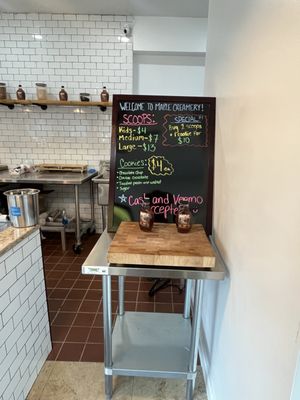 WELCOME TO MAPLE CREAMERY!
SCOOPS:
Kids-$4
Medium-$7
Large-$13
SPECIAL:
Buy 2 scoops
for
$10
Cookies:
$4 ea
Chocolate Chip
Double Chocolate
Sugar
Cash and Venmo
accepted